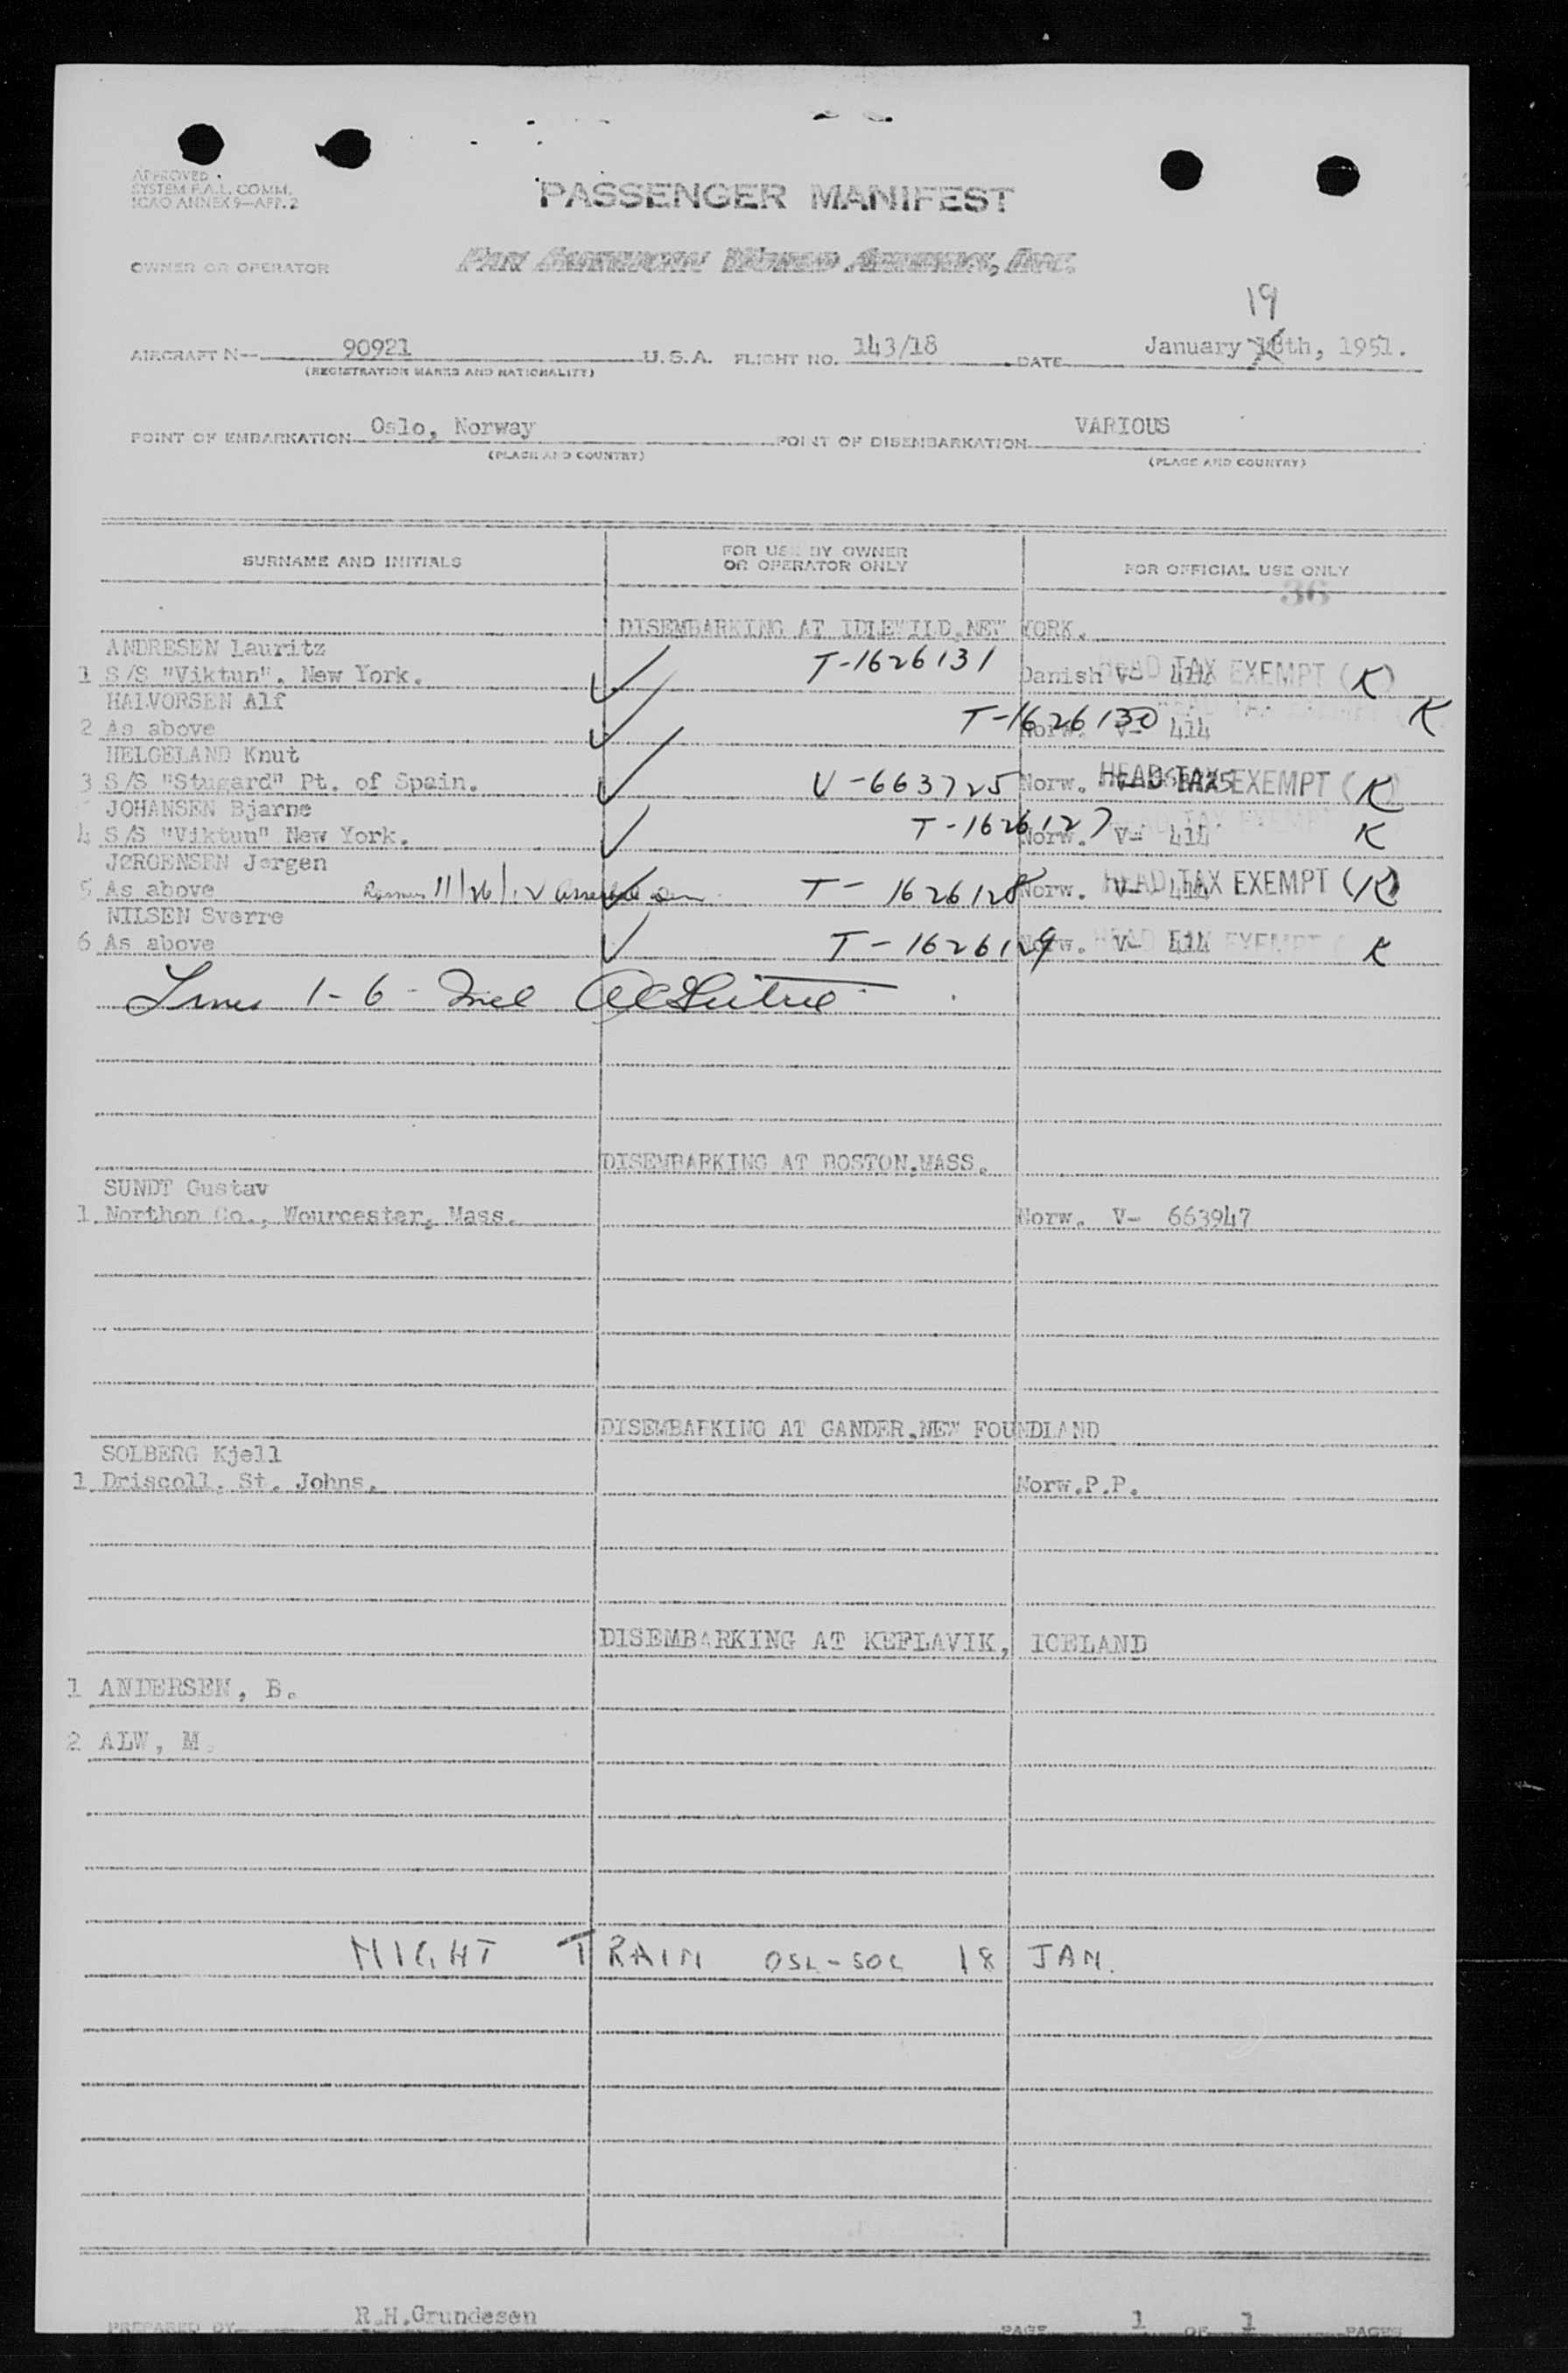 APPROVED
SYSTEM F.A.L. COMM.
ICAO ANNEX 9—APP. 2
PASSENGER MANIFEST
OWNER OR OPERATOR PAN AMERICAN WORLD AIRWAYS, INC.
19
AIRCRAFT N-- 90921 U.S.A. FLIGHT NO. 143/18 DATE January 18th, 1951.
(REGISTRATION MARKS AND NATIONALITY)
POINT OF EMBARKATION Oslo, Norway POINT OF DISEMBARKATION VARIOUS
(PLACE AND COUNTRY) (PLACE AND COUNTRY)
SURNAME AND INITIALS FOR USE BY OWNER OR OPERATOR ONLY FOR OFFICIAL USE ONLY
36
DISEMBARKING AT IDLEWILD, NEW YORK.
ANDRESEN Lauritz
1 S/S "Viktun", New York. T-1626131 Danish V- 414 HEAD TAX EXEMPT (K)
HALVORSEN Alf
2 As above T-1626130 Norw. V- 414 K
HELGELAND Knut
3 S/S "Stugard" Pt. of Spain. V-663725 Norw. HEAD TAX EXEMPT (K)
JOHANSEN Bjarne
4 S/S "Viktun" New York. T-1626127 Norw. V- 414 K
JØRGENSEN Jørgen
5 As above 11/26/ T-1626128 Norw. V- 414 HEAD TAX EXEMPT (K)
NILSEN Sverre
6 As above T-1626129 Norw. V- 414 HEAD TAX EXEMPT K
Lines 1-6- Incl
DISEMBARKING AT BOSTON, MASS.
SUNDT Gustav
1 Northon Co., Wourcester, Mass. Norw. V- 663947
DISEMBARKING AT GANDER, NEW FOUNDLAND
SOLBERG Kjell
1 Driscoll, St. Johns. Norw.P.P.
DISEMBARKING AT KEFLAVIK, ICELAND
1 ANDERSEN, B.
2 ALW, M.
NIGHT TRAIN OSL-SOL 18 JAN.
PREPARED BY R.H.Grundesen PAGE 1 OF 1 PAGES